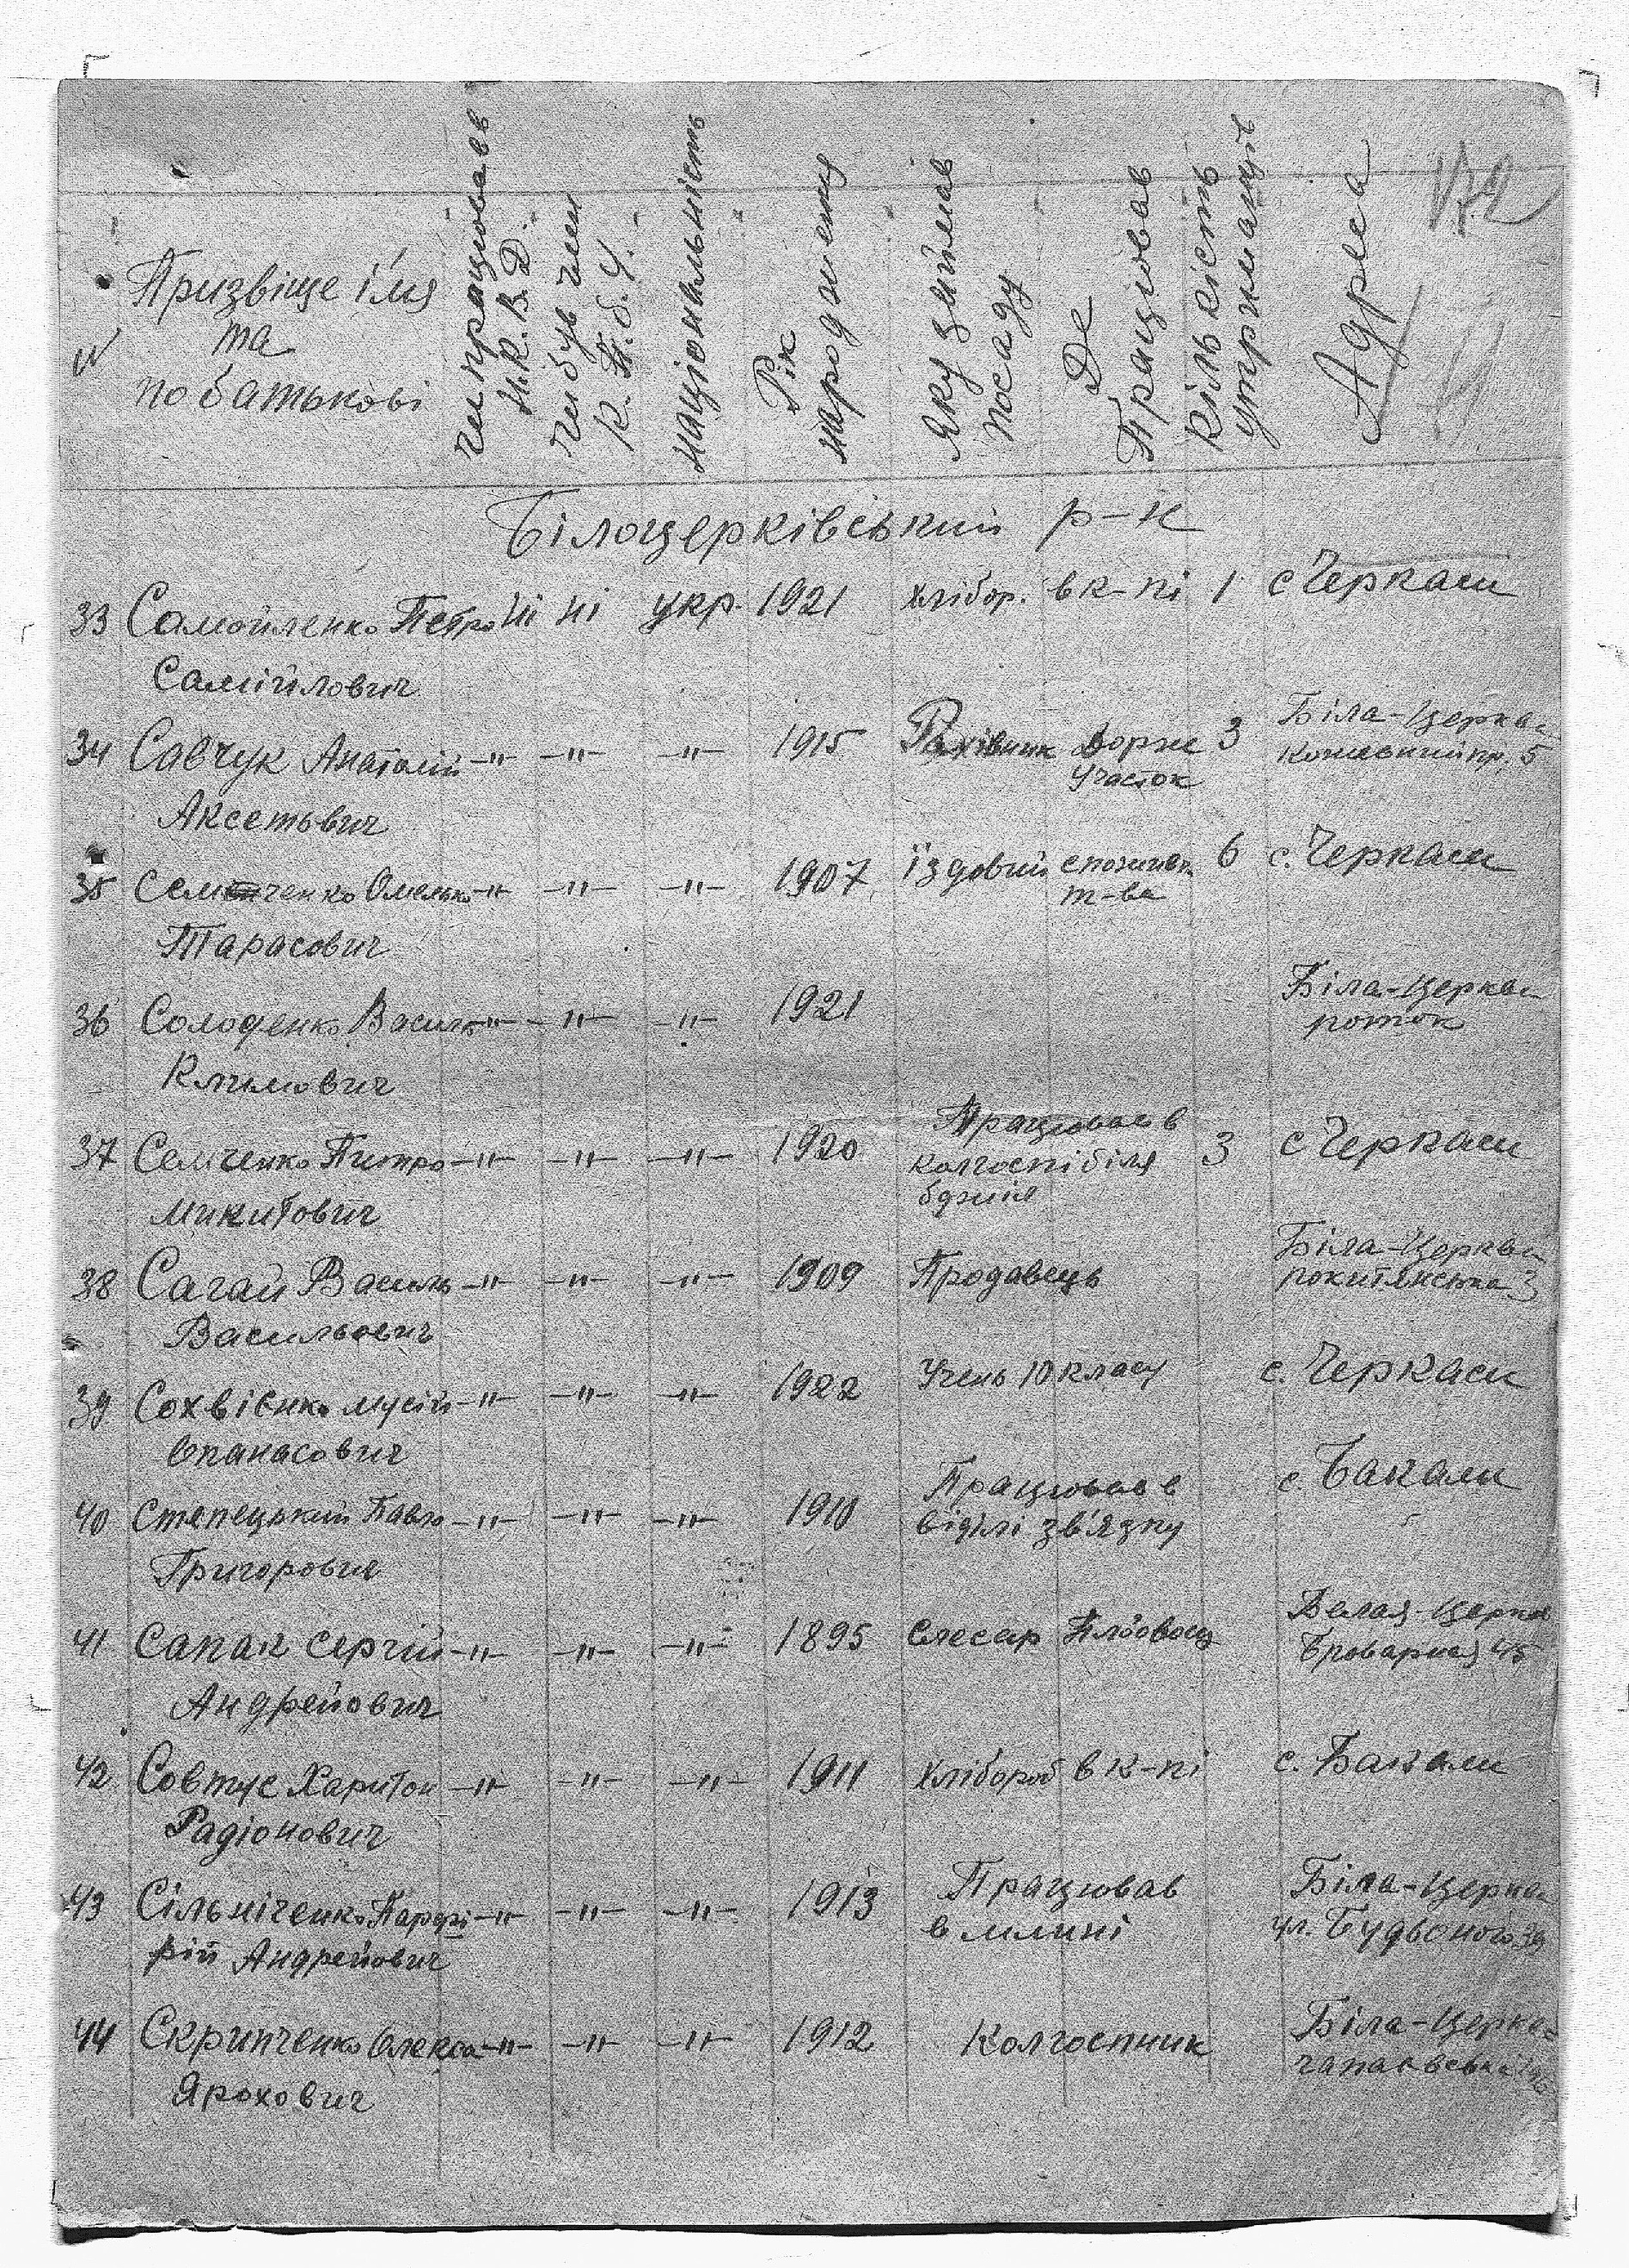 172
№ Призвіще і'мя та по батькові
Чи працював Н.К.В.Д.
Чи був член К.П.б.У.
Національність
Рік народження
Яку займав посаду
Де Працював
Кількість утриманців
Адреса
Білоцерківський р-н
33 Самойленко Петро ні ні укр. 1921 хлібор. в к-пі 1 с Черкаси
Самійлович
34 Савчук Анатолій -"- -"- -"- 1915 Рахівник Дорж 3 Біла-Церква
участок пр. 5
35 Семченко Омелько -"- -"- -"- 1907 Їздовий споживч 6 с. Черкаси
т-ва
Тарасович
36 Солоденко Василь -"- -"- -"- 1921 Біла-Церква
роток
Климович
37 Семченко Питро -"- -"- -"- 1920 Працював в 3 с Черкаси
колгоспі біля
бджіл
Микитович
38 Сагай Василь -"- -"- -"- 1909 Продавець Біла-Церква
рокитянська 3
Васильович
39 Сохвієнко Мусій -"- -"- -"- 1922 Учень 10 класу с. Черкаси
Опанасович
40 Степецький Павло -"- -"- -"- 1910 Працював в с. Бакали
відділі зв'язку
Григорович
41 Сапак Сергій -"- -"- -"- 1895 Слесар Белая-Церков
Броварная 45
Андрейович
42 Совтус Харитон -"- -"- -"- 1911 хлібороб в к-пі с. Бакали
Радіонович
43 Сільніченко Парфі -"- -"- -"- 1913 Працював Біла-Церква
в млині ул. Будьоного 39
рій Андрейович
44 Скрипченко Олекса -"- -"- -"- 1912 Колгоспник Біла-Церква
Ярохович